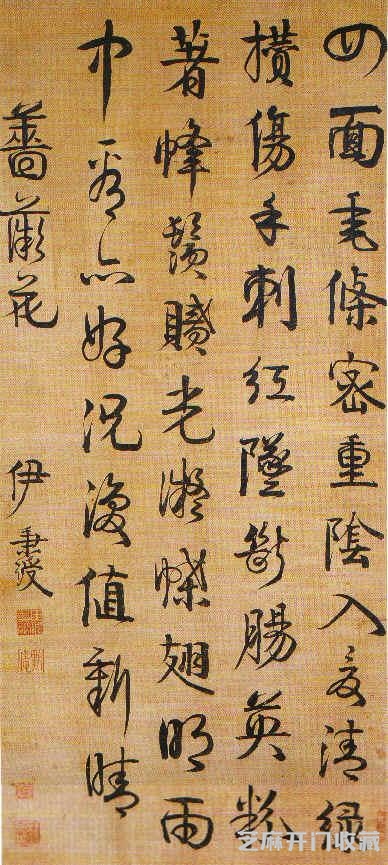 四面垂條密重陰入夏清綠
攢傷手刺紅墜斷腸英粉
著蜂鬚膩光凝蝶翅明雨
中看亦好況復值新晴
薔薇花
伊秉綬
芝麻开门收藏